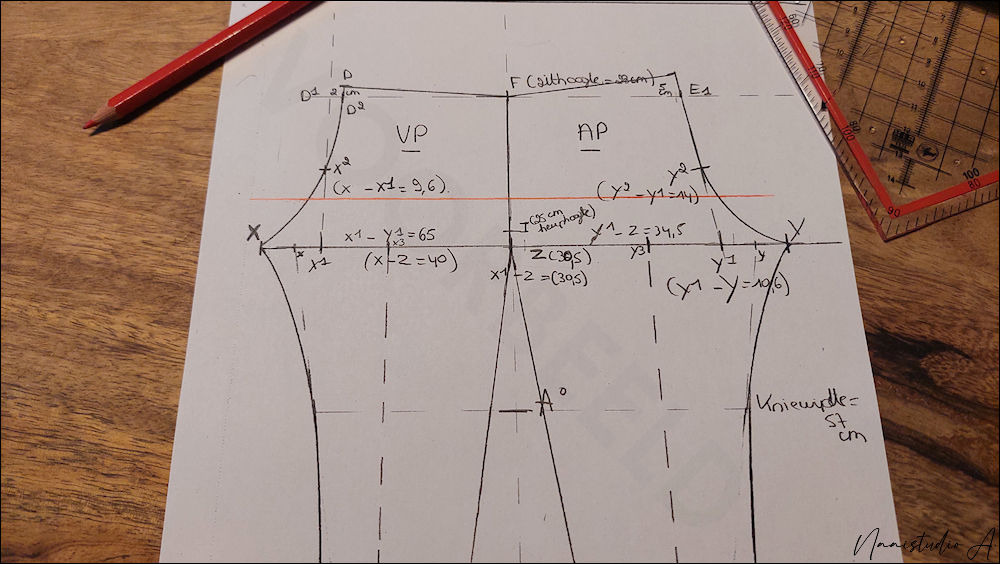 D
F (zithoogte = 28 cm)
D1
2 cm
5 cm
E1
D2
VP
AP
X2
Y2
(X - X1 = 9,6).
(Y2 - Y1 = 14)
I (25 cm heuphoogte)
X
X1 - Y1 = 65
Y1 - Z = 34,5
Y
x
X1
X3
(X - Z = 40)
Z (30,5)
Y3
Y1
y
X1 - Z = (30,5)
(Y1 - Y = 10,6)
A°
Kniewijdte =
57
cm
Naaistudio A